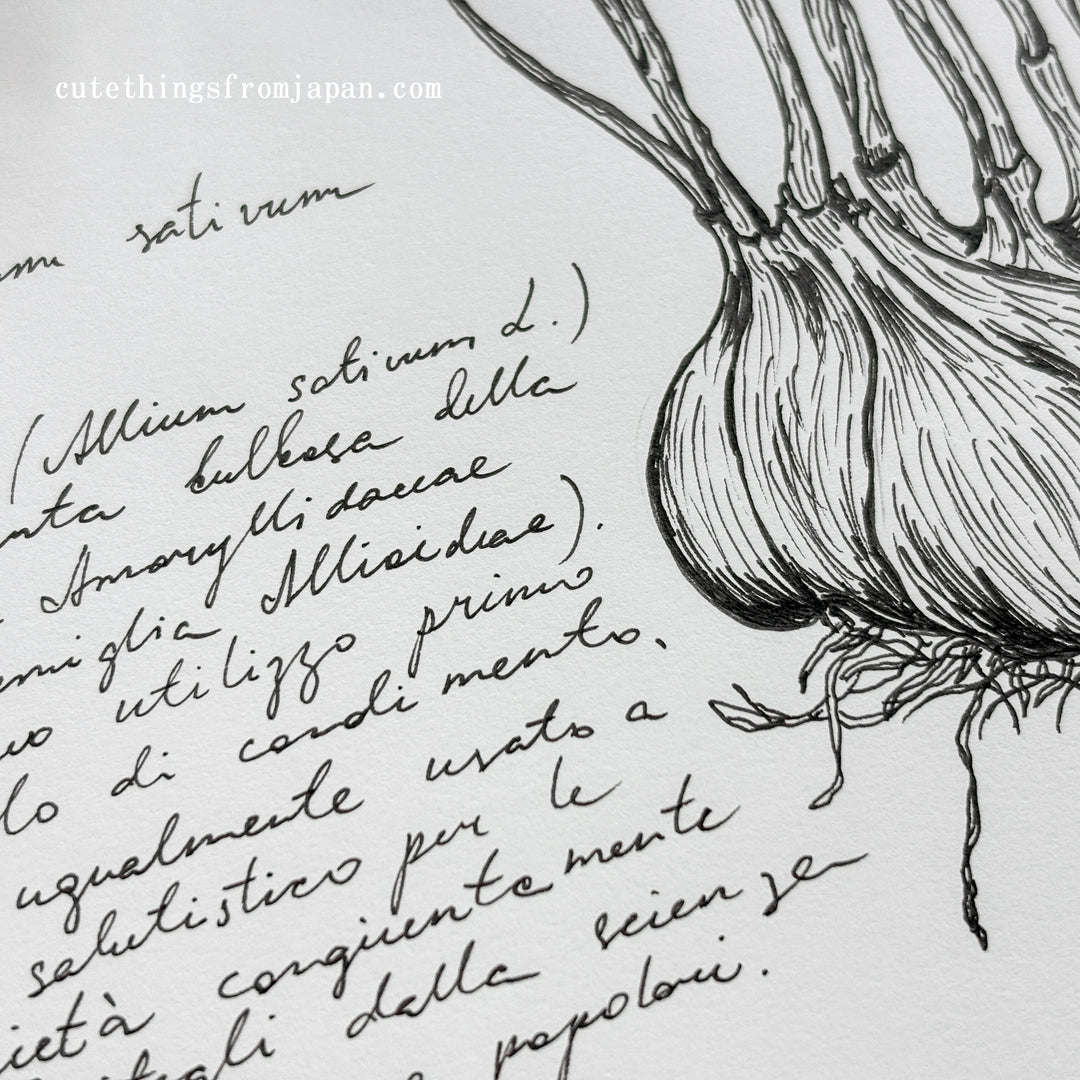 cutethingsfromjapan.com
sativum
(Allium sativum L.)
bulbosa della
Amaryllidaceae
Allioideae).
utilizzo primo
di condimento,
ugualmente usato a
salutistico per le
congruentemente
dalla scienza
popolari.